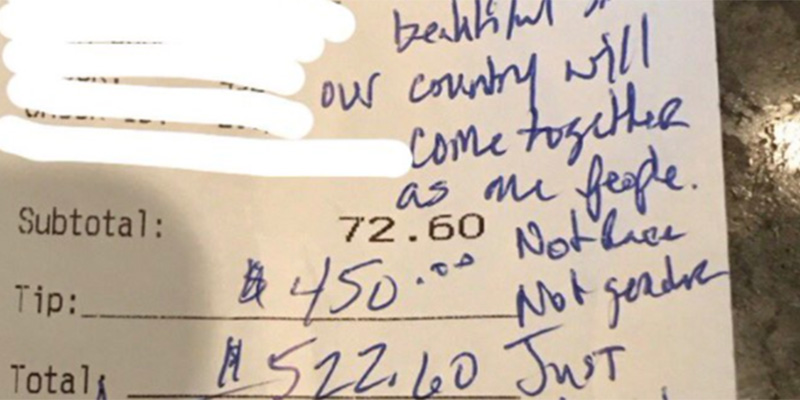 beautiful
our country will
come together
as one people.
Subtotal: 72.60
Not Race
Tip: $450.00
Not gender
Total: $522.60
Just